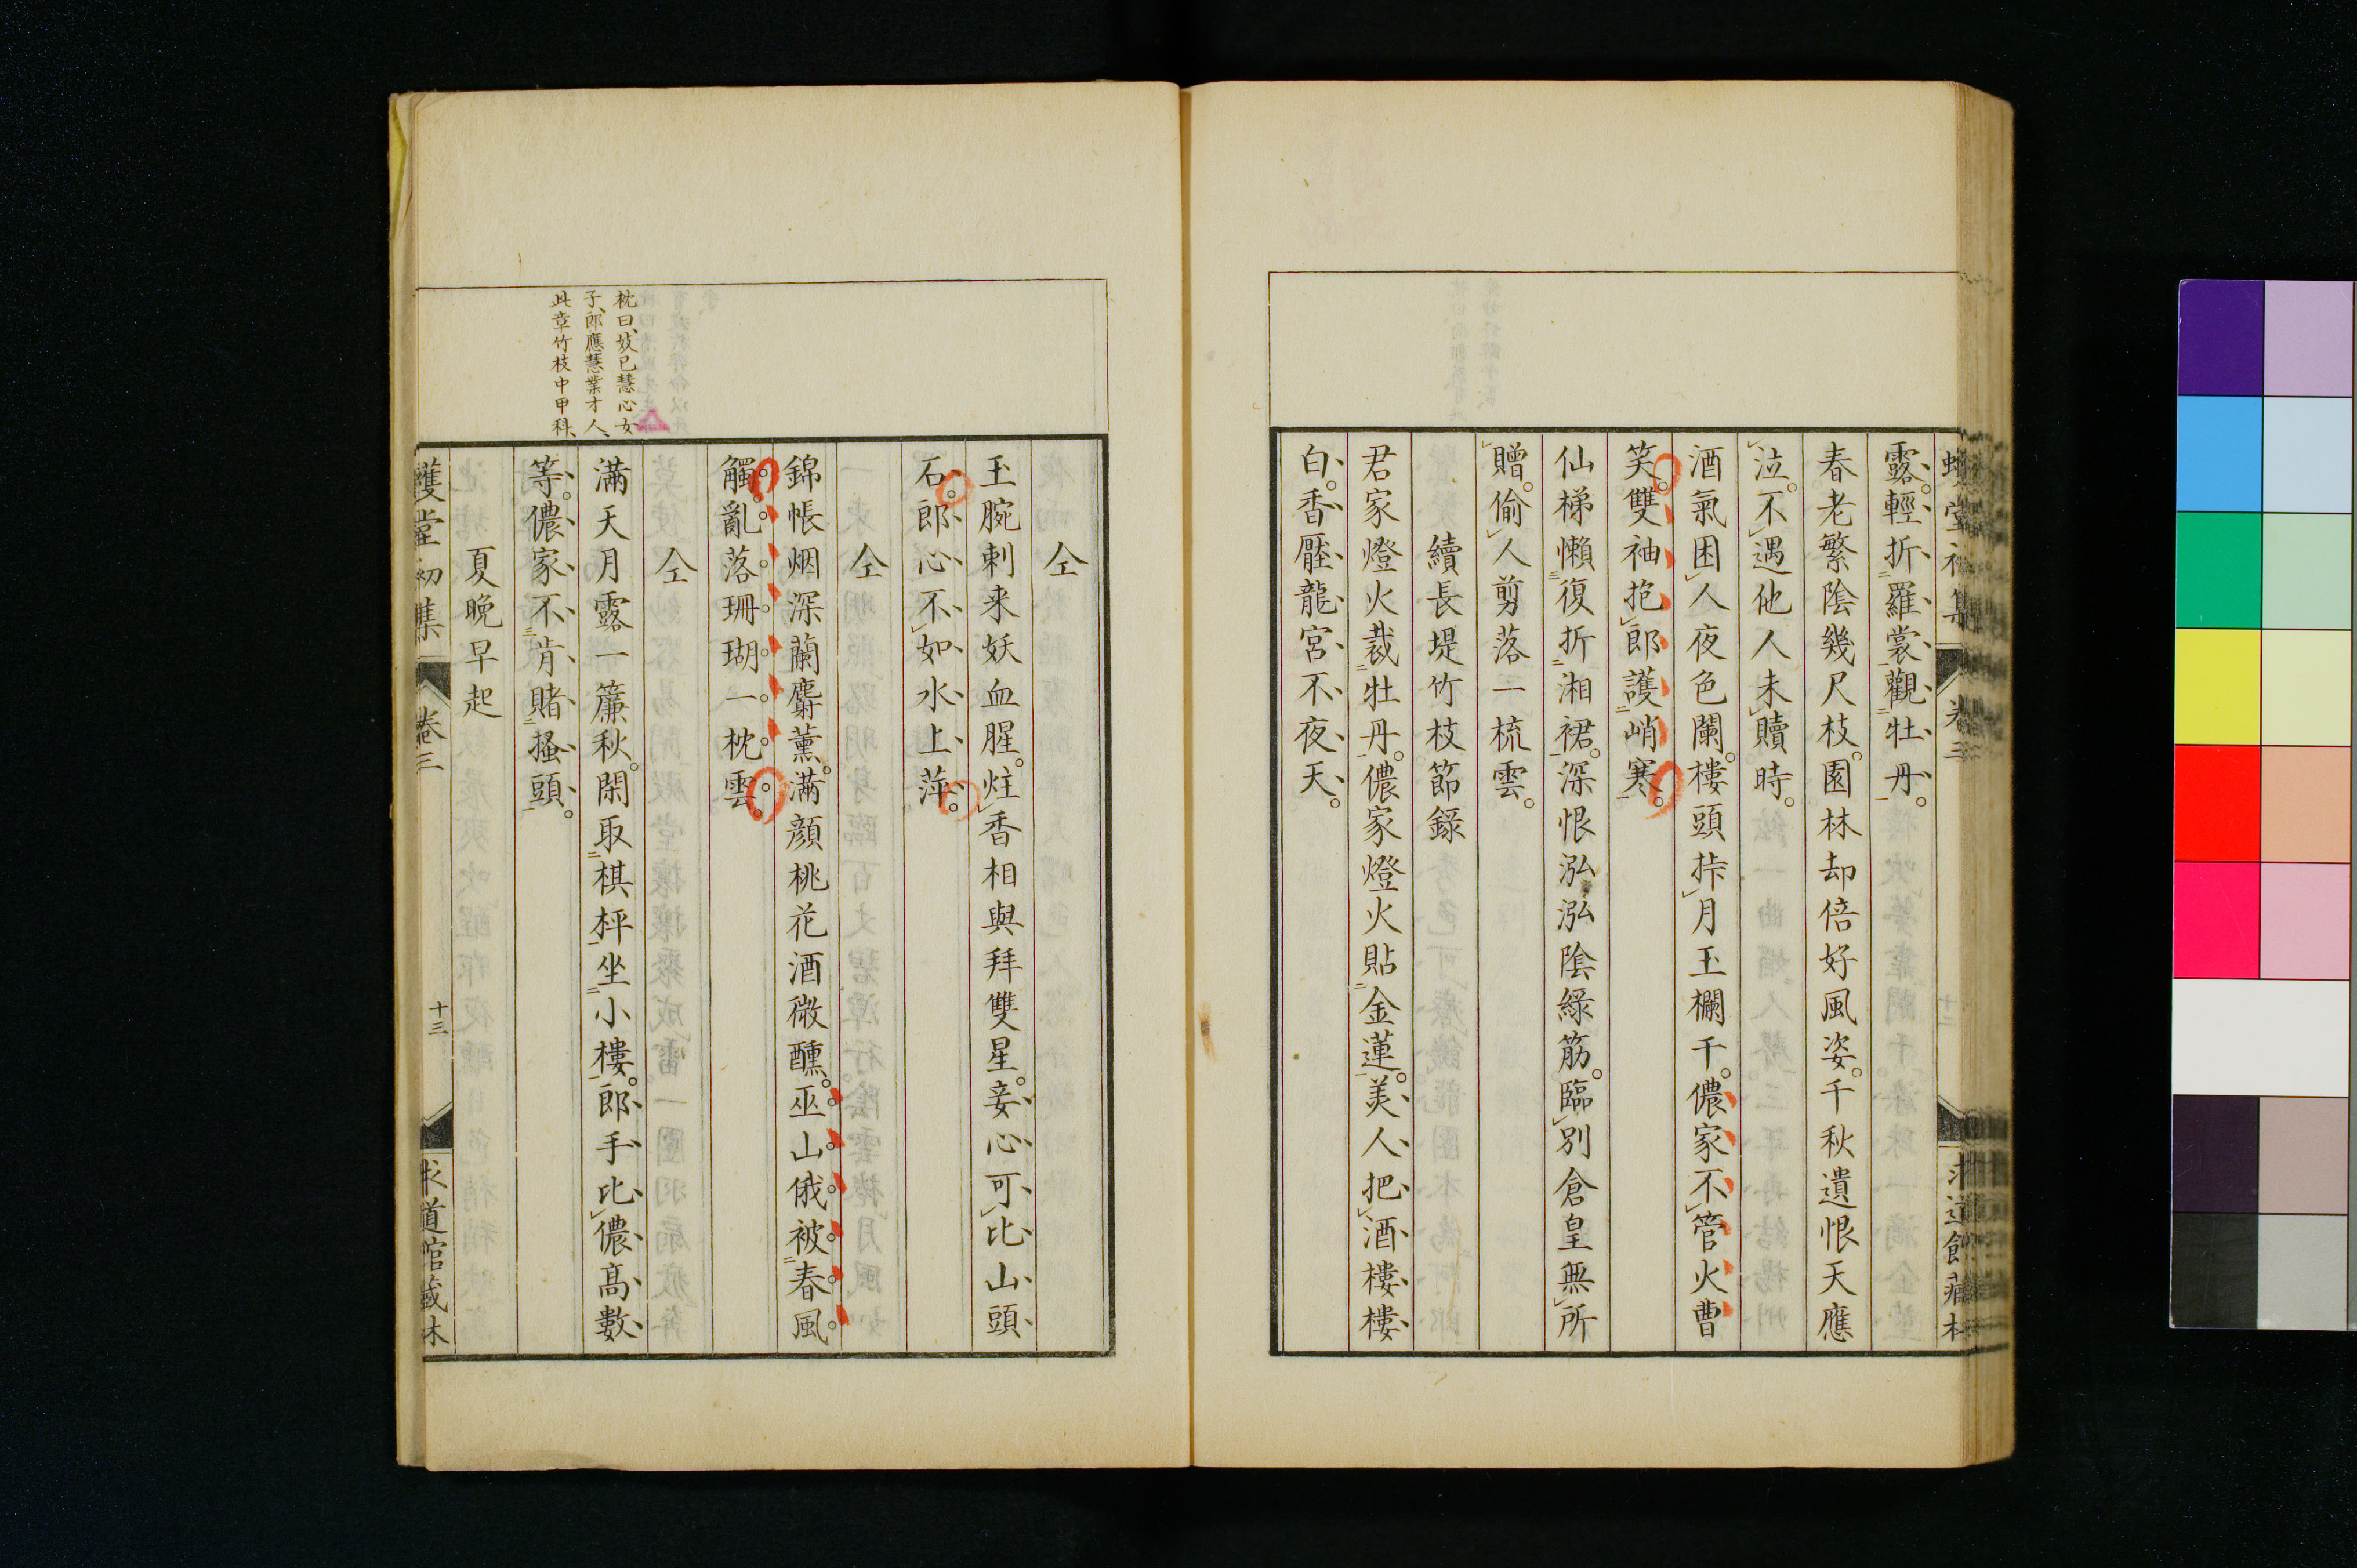 露輕折羅裳觀牡丹。
春老繁陰幾尺枝。園林却倍好風姿。千秋遺恨天應
泣。不遇他人未贖時。
酒氣困人夜色闌。樓頭挂月玉欄干。儂家不管火曹
笑。雙袖抱郎護峭寒。
仙梯懶復折湘裙。深恨泓泓陰綠筋。臨別倉皇無所
贈。偷人剪落一梳雲。
續長堤竹枝節録
君家燈火裁牡丹。儂家燈火貼金蓮。美人把酒樓樓
白。香壓龍宮不夜天。
仝
玉腕刺来妖血腥。炷香相與拜雙星。妾心可比山頭
石。郎心不如水上萍。
仝
錦帳烟深蘭麝薰。満顔桃花酒微醺。巫山俄被春風
觸。亂落珊瑚一枕雲。
仝
満天月露一簾秋。閑取棋枰坐小樓。郎手比儂高數
等。儂家不肯賭搔頭。
夏晩早起
枕曰、妓已慧心女
子、郎應慧業才人、
此章竹枝中甲科、
初集 卷三 十三 求道館蔵本